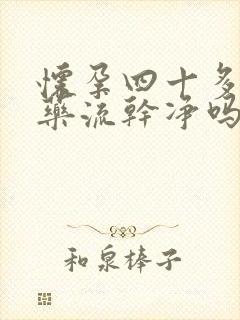 懷孕四十多
藥流幹凈嗎
和泉棒子